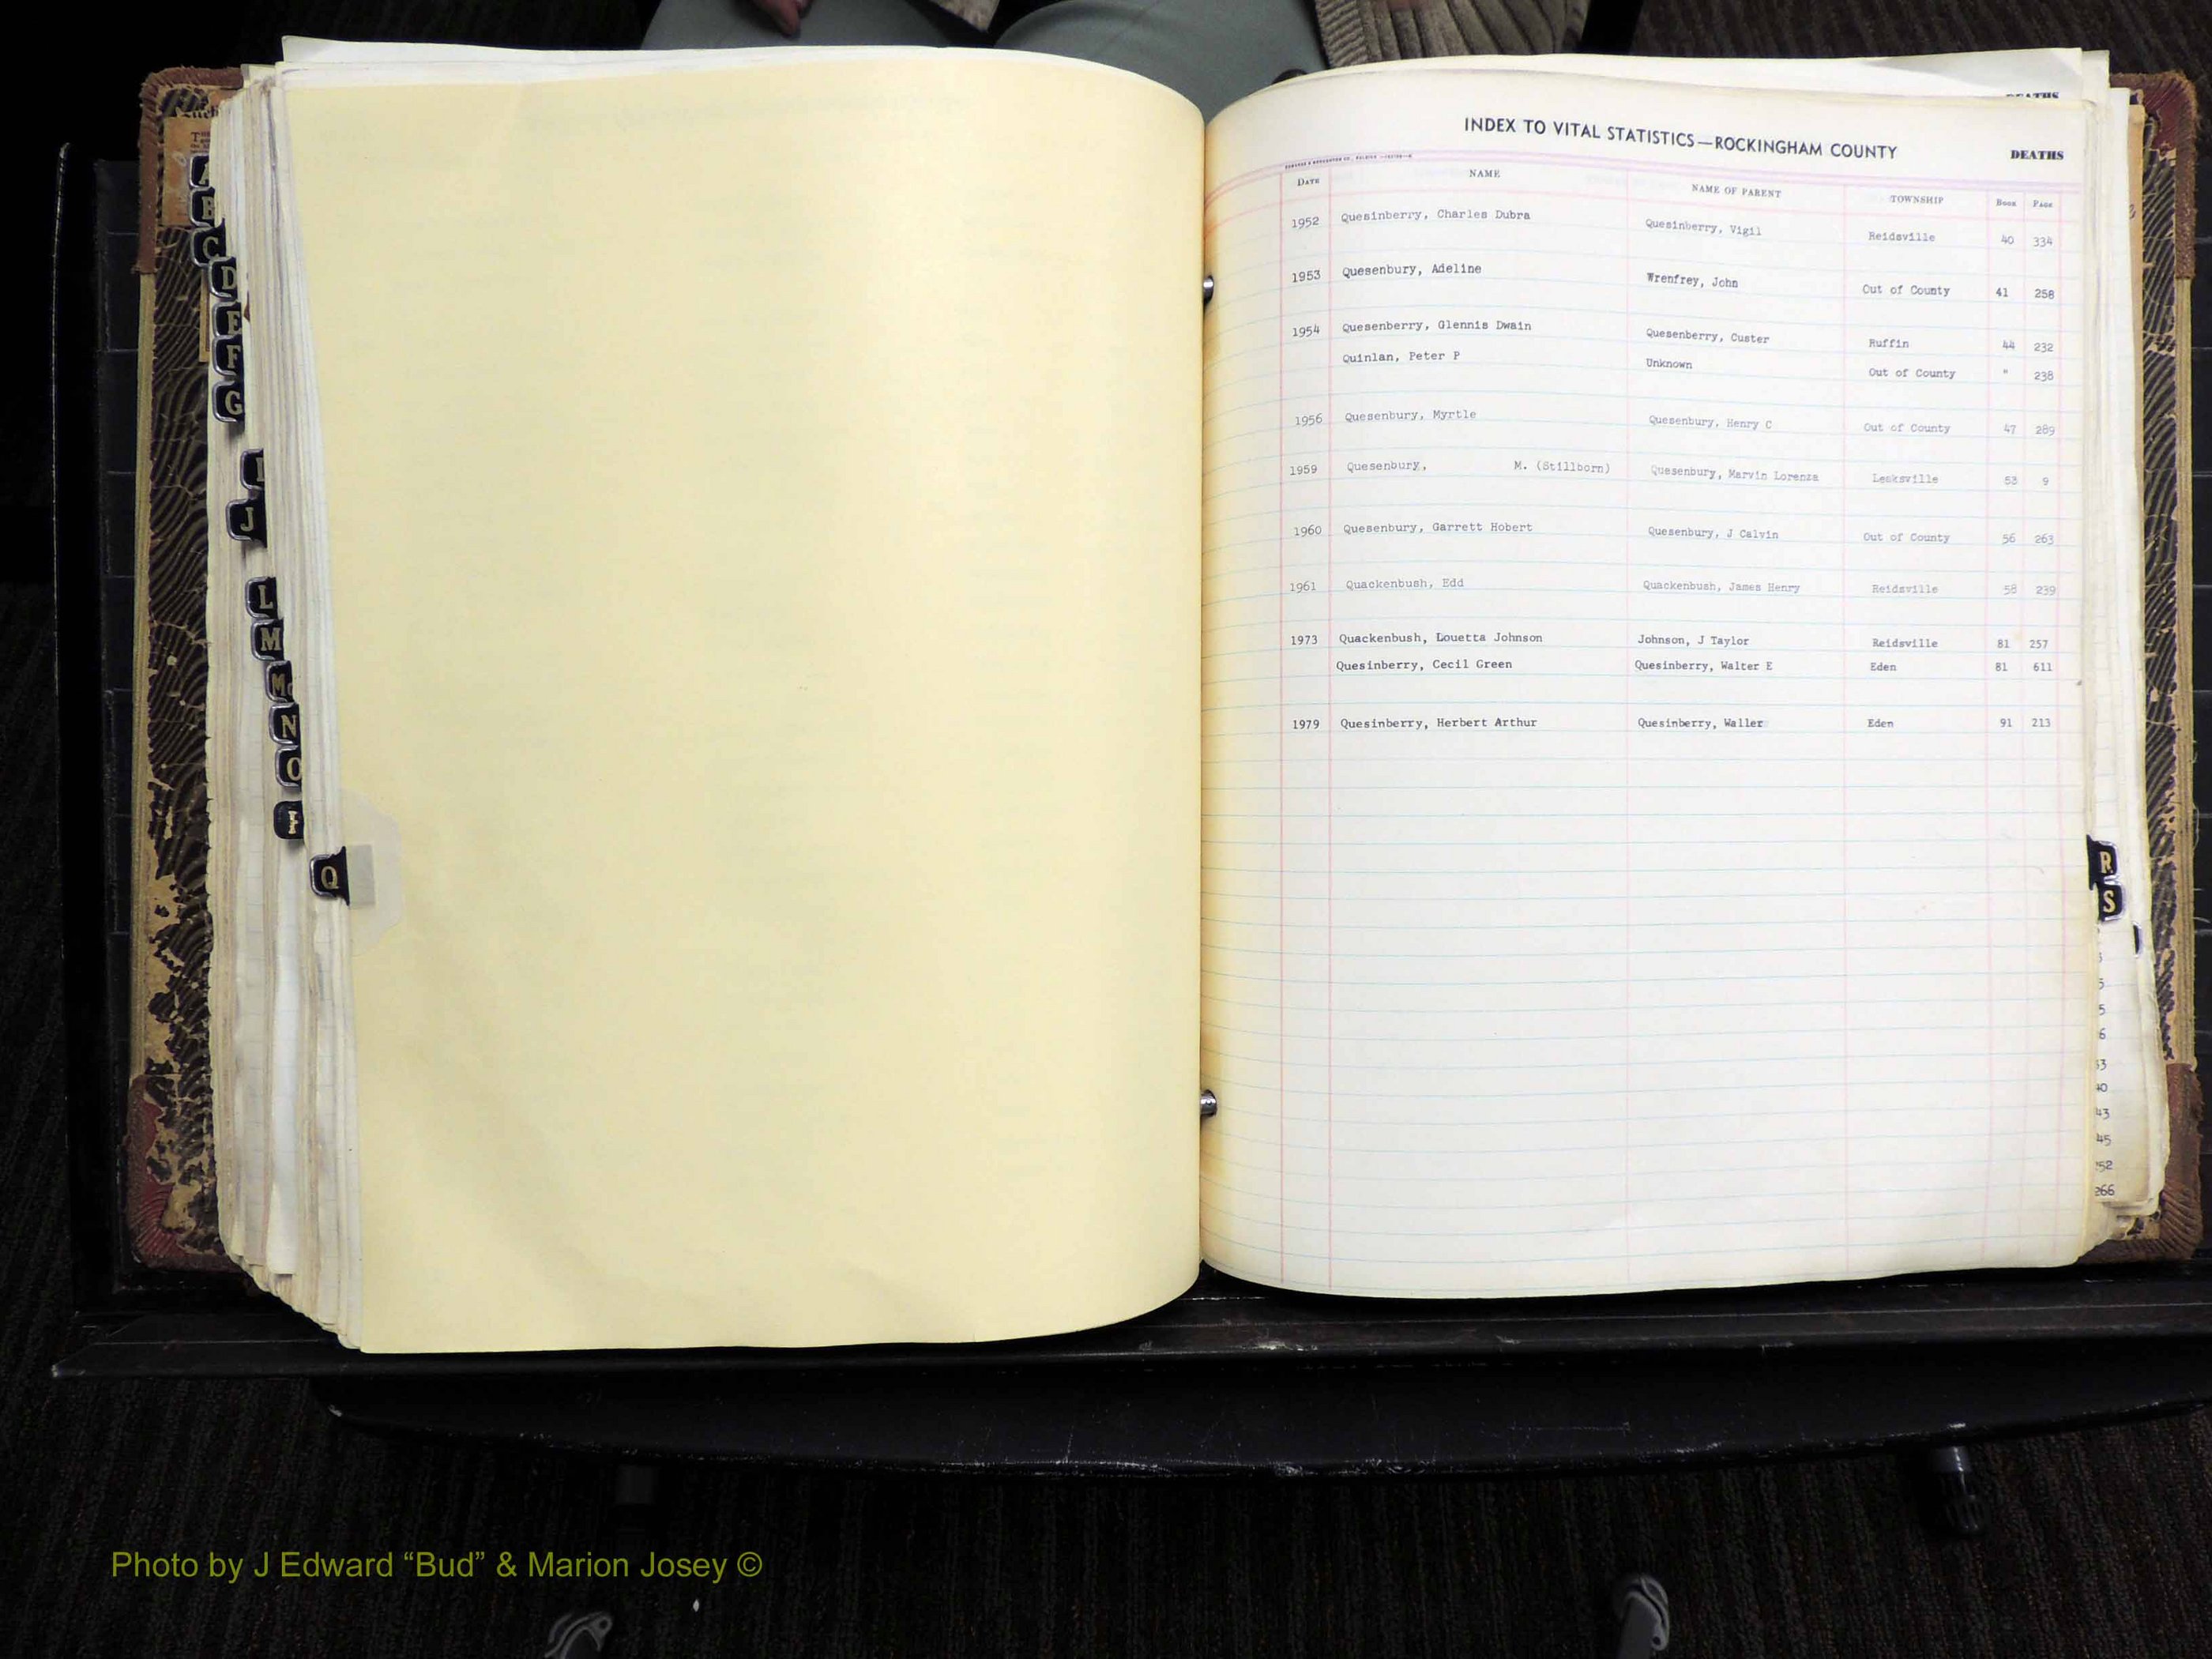 DEATHS
INDEX TO VITAL STATISTICS—ROCKINGHAM COUNTY
DEATHS
DATE NAME NAME OF PARENT TOWNSHIP BOOK PAGE
1952 Quesinberry, Charles Dubra Quesinberry, Vigil Reidsville 40 334
1953 Quesenbury, Adeline Wrenfrey, John Out of County 41 258
1954 Quesenberry, Glennis Dwain Quesenberry, Custer Ruffin 44 232
Quinlan, Peter P Unknown Out of County " 238
1956 Quesenbury, Myrtle Quesenbury, Henry C Out of County 47 289
1959 Quesenbury, M. (Stillborn) Quesenbury, Marvin Lorenza Leaksville 53 9
1960 Quesenbury, Garrett Hobert Quesenbury, J Calvin Out of County 56 263
1961 Quackenbush, Edd Quackenbush, James Henry Reidsville 58 239
1973 Quackenbush, Louetta Johnson Johnson, J Taylor Reidsville 81 257
Quesinberry, Cecil Green Quesinberry, Walter E Eden 81 611
1979 Quesinberry, Herbert Arthur Quesinberry, Waller Eden 91 213
A
B
C
D
E
F
G
I
J
L
M
Mc
N
O
Q
R
S
5
6
43
45
52
266
Photo by J Edward “Bud” & Marion Josey ©